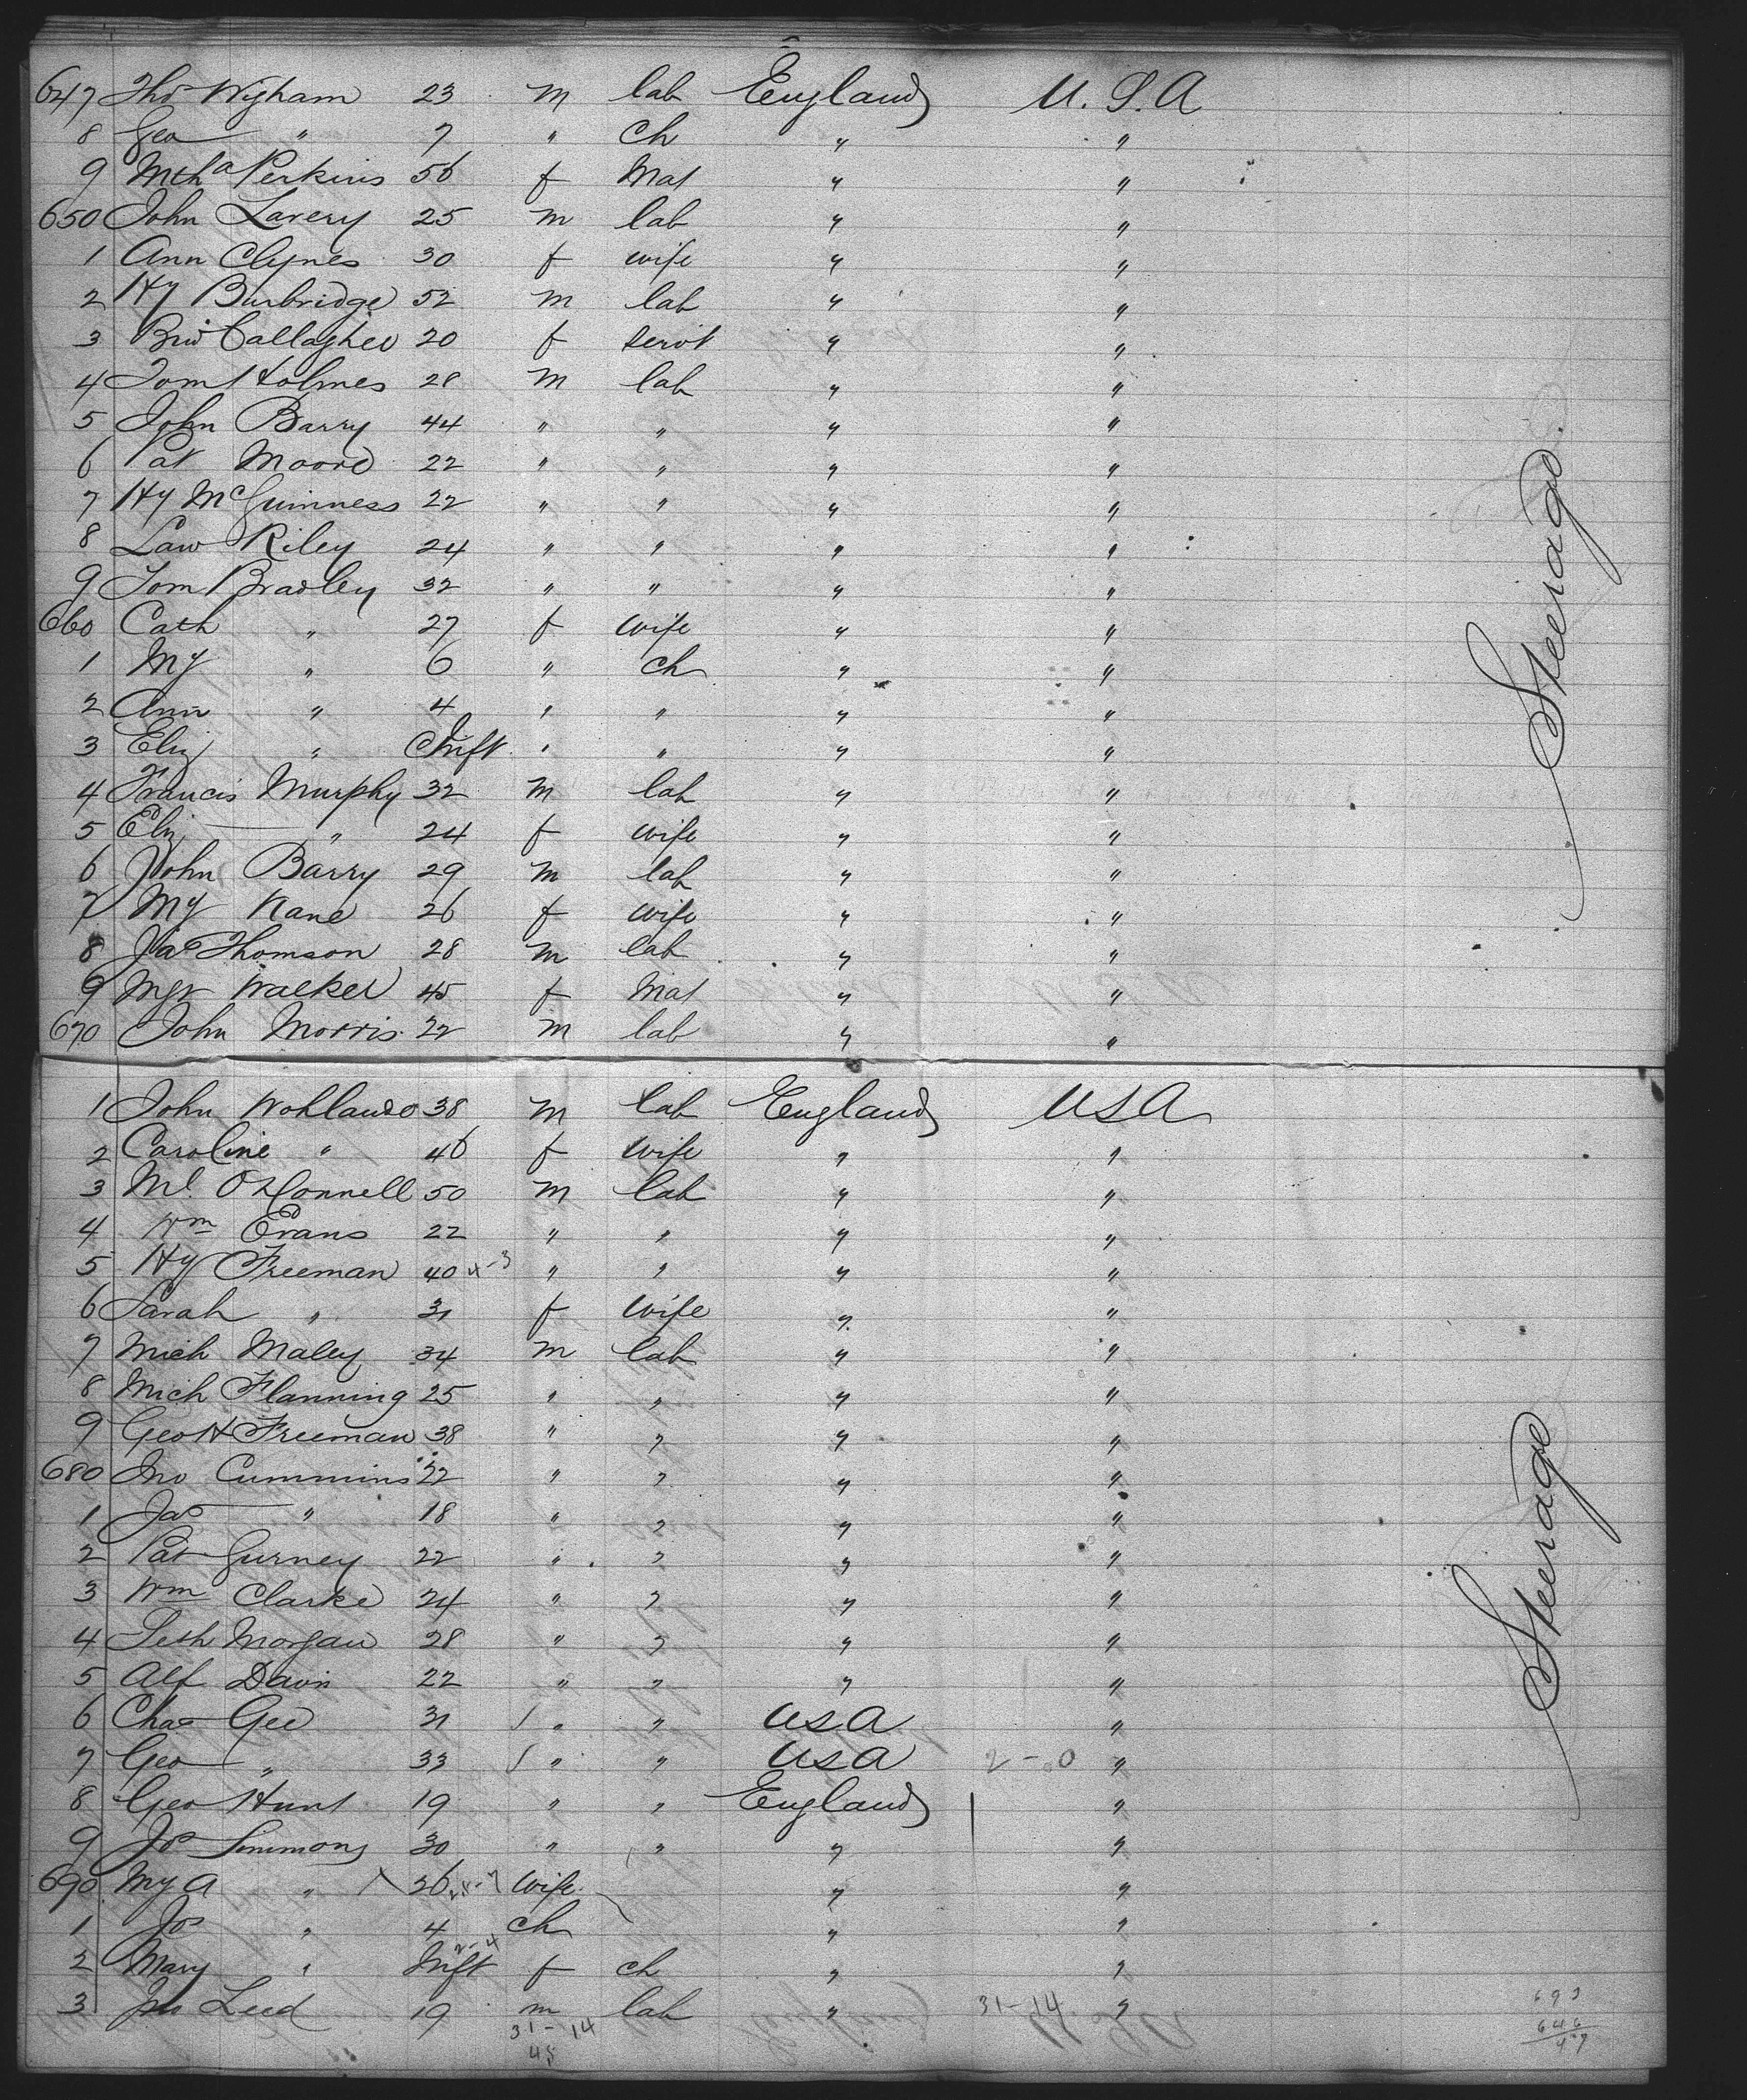 647 Thos Wigham 23 m lab England U.S.A
8 Geo " 7 " ch " "
9 Mtha Perkins 56 f Mat " "
650 John Lavery 25 m lab " "
1 Ann Clynes 30 f wife " "
2 Hy Burbridge 52 m lab " "
3 Brid Callagher 20 f servt " "
4 Tom Holmes 28 m lab " "
5 John Barry 44 " " " "
6 Pat Moore 22 " " " "
7 Hy McGuinness 22 " " " "
8 Law Riley 24 " " " "
9 Tom Bradley 32 " " " "
660 Cath " 27 f wife " "
1 My " 6 " ch " "
2 Ann " 4 " " " "
3 Eliz " Inft " " " "
4 Francis Murphy 32 m lab " "
5 Eliz " 24 f wife " "
6 John Barry 29 m lab " "
7 My Kane 26 f wife " "
8 Jas Thomson 28 m lab " "
9 Mgt Walker 45 f Mat " "
670 John Morris 22 m lab " "
Steerage
1 John 38 m lab England USA
2 Caroline " 46 f wife " "
3 Ml. O'Connell 50 m lab " "
4 Wm Evans 22 " " " "
5 Hy Freeman 40 4-3 " " " "
6 Sarah " 31 f wife " "
7 Mich Maley 34 m lab " "
8 Mich Flanning 25 " " " "
9 Geo H Freeman 38 " " " "
680 Jno Cummins 22 " " " "
1 Jas " 18 " " " "
2 Pat Gurney 22 " " " "
3 Wm Clarke 24 " " " "
4 Seth Morgan 28 " " " "
5 Alf 22 " " " "
6 Chas Gee 31 " " USA "
7 Geo " 33 " " USA 2-0 "
8 Geo Hunt 19 " " England "
9 Jos Simmons 30 " " " "
690 My A " 26 wife " "
1 Jos " 4 ch " "
2 Mary " Inft 2-4 f ch " "
3 Jno Leed 19 m lab " 31-14 "
31-14
45
693
646
47
Steerage